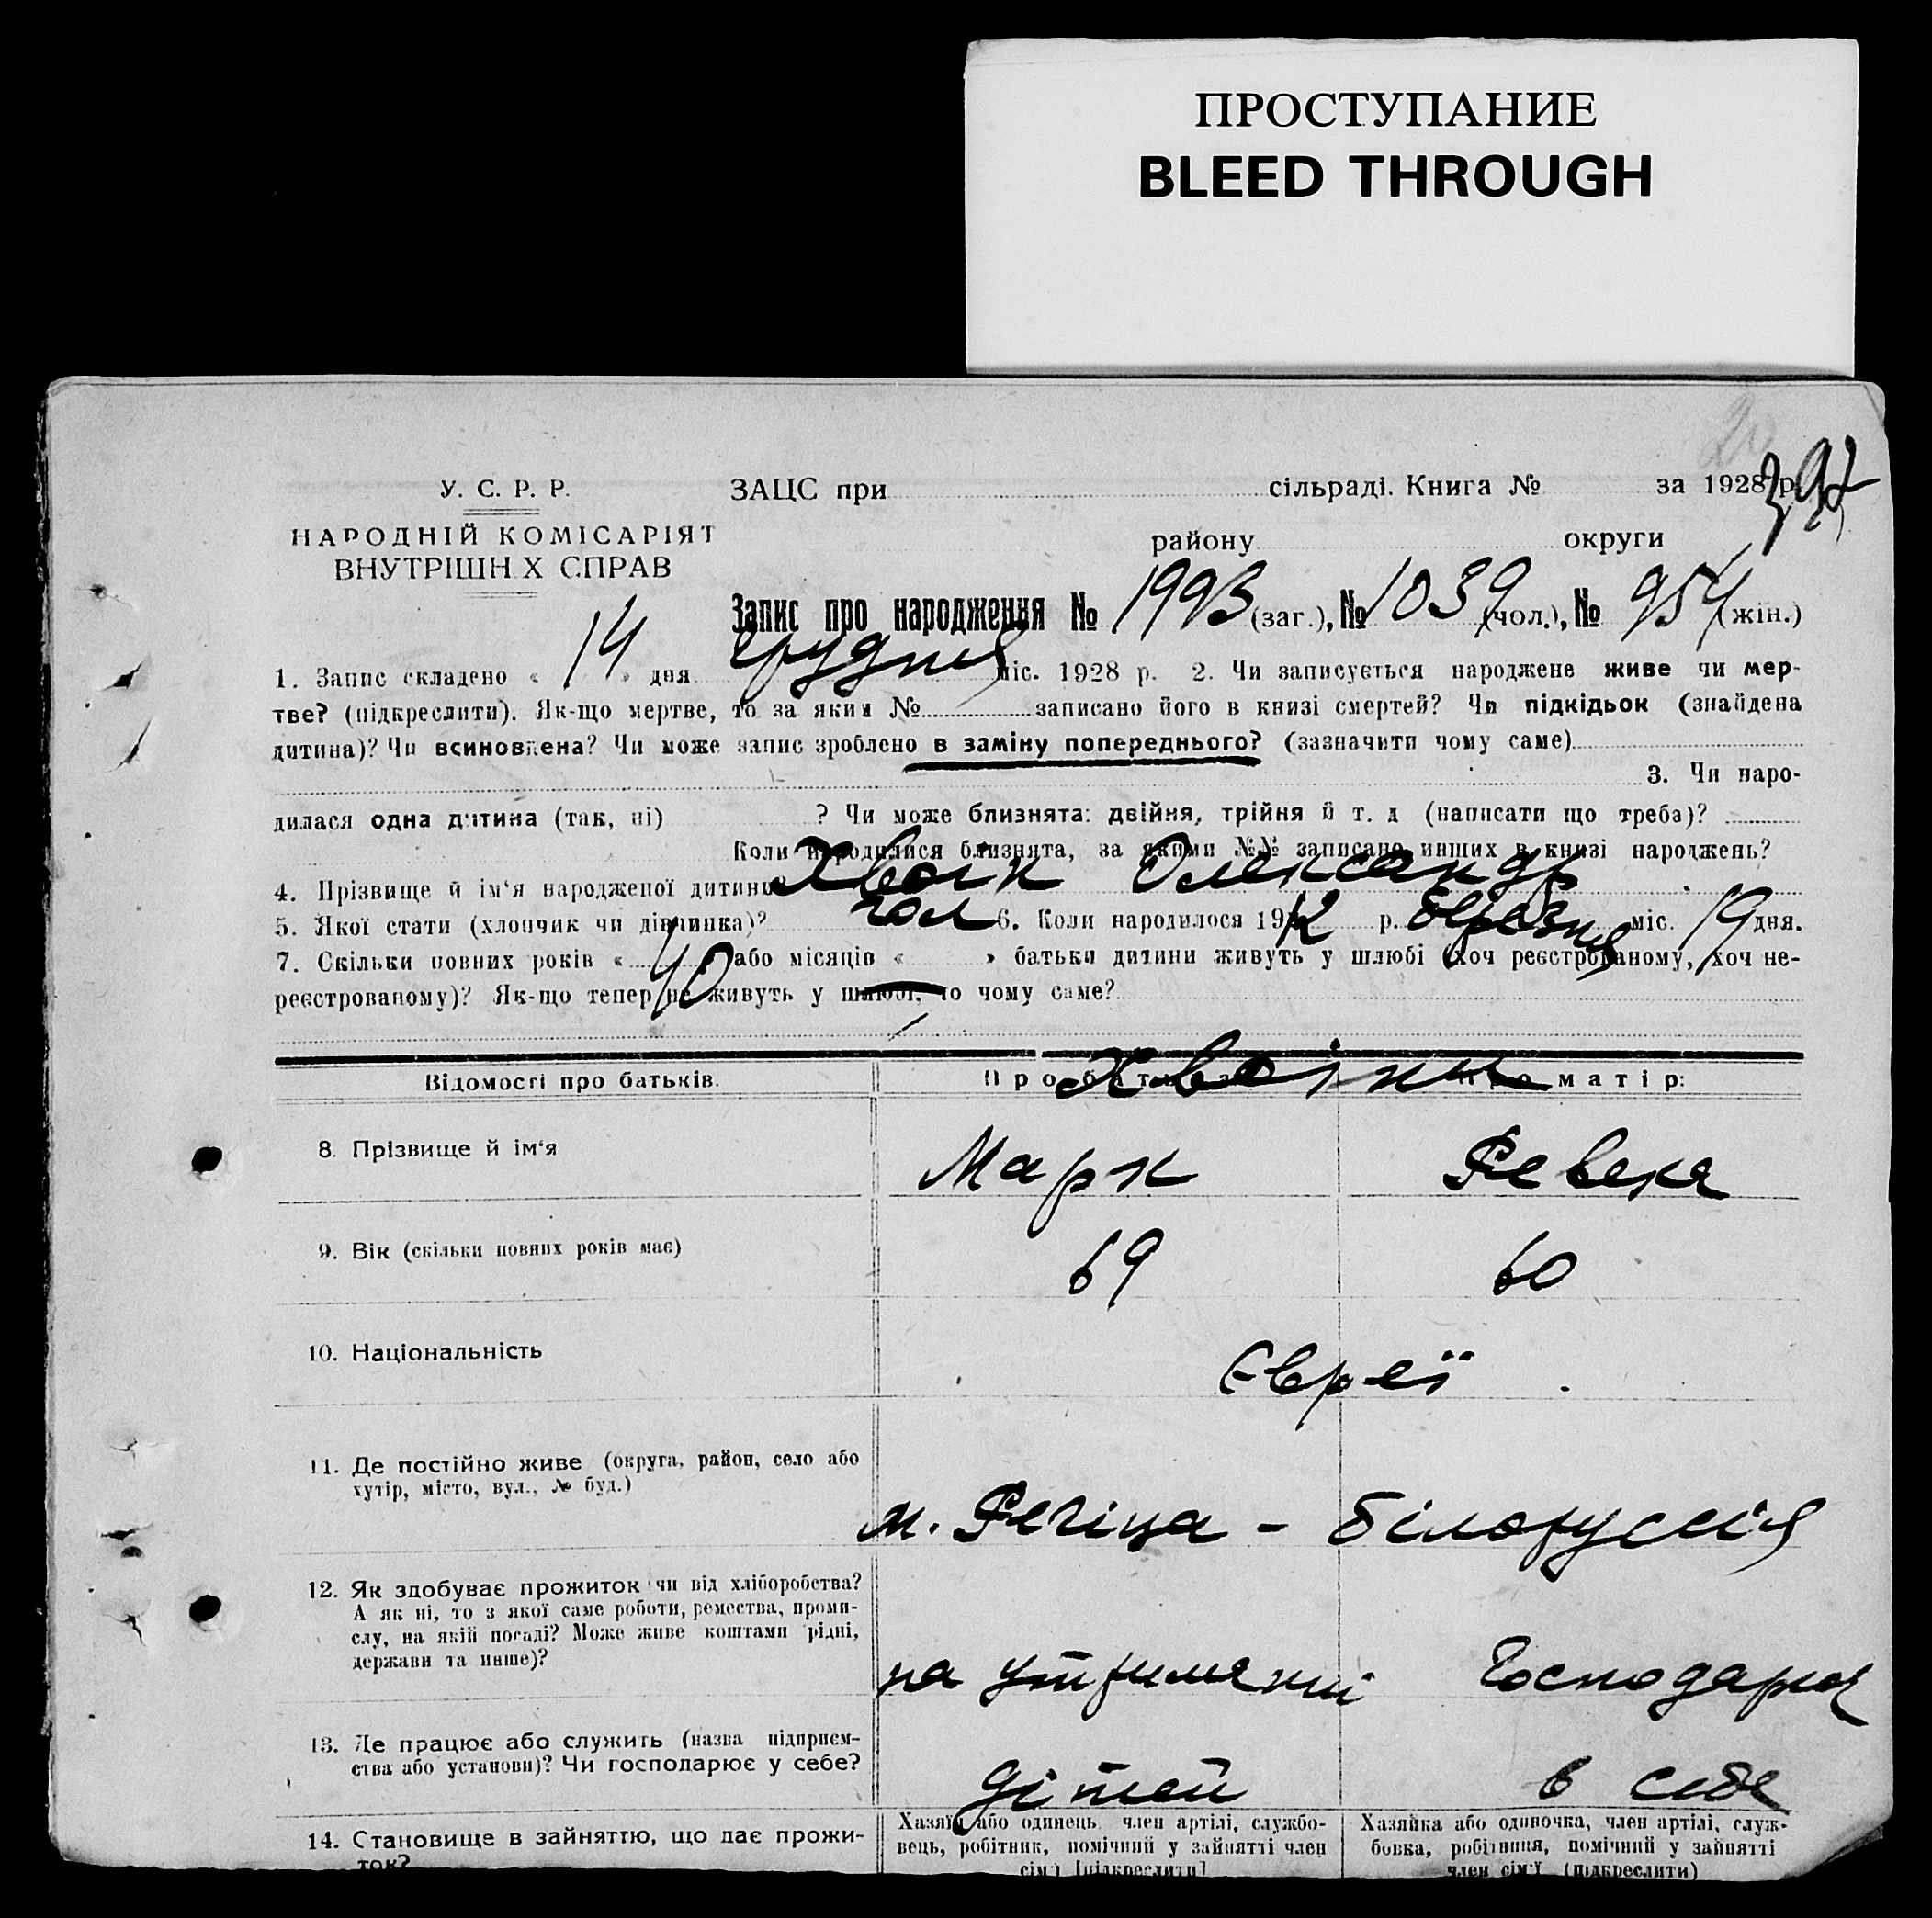 ПРОСТУПАНИЕ
BLEED THROUGH
У. С. Р. Р.
НАРОДНІЙ КОМІСАРІЯТ
ВНУТРІШН Х СПРАВ
ЗАЦС при сільраді. Книга № за 1928 р.
району округи
Запис про народження № 1993 (заг.), № 1039 (чол.), № 954 (жін.)
1. Запис складено « 14 » дня грудня міс. 1928 р. 2. Чи записується народжене живе чи мер-
тве? (підкреслити). Як-що мертве, то за яким № записано його в книзі смертей? Чи підкідьок (знайдена
дитина)? Чи всиновлена? Чи може запис зроблено в заміну попереднього? (зазначити чому саме)
3. Чи наро-
дилася одна дитина (так, ні) ? Чи може близнята: двійня, трійня й т. д (написати що треба)?
Коли народилися близнята, за якими №№ записано инших в книзі народжень?
4. Прізвище й ім'я народженої дитини? Хвоїн Олександр
5. Якої стати (хлопчик чи дівчинка)? чол 6. Коли народилося 1912 р. березня міс. 19 дня.
7. Скільки повних років « 40 або місяців « » батьки дитини живуть у шлюбі (хоч реєстрованому, хоч не-
реєстрованому)? Як-що тепер не живуть у шлюбі, то чому саме?
Відомості про батьків. Про батька: Про матір:
Хвоїни
8. Прізвище й ім'я Марк Ревека
9. Вік (скільки повних років має) 69 60
10. Національність Євреї
11. Де постійно живе (округа, район, село або
хутір, місто, вул., № буд.)
м. Речіца - Білоруссія
12. Як здобуває прожиток чи від хліборобства?
А як ні, то з якої саме роботи, ремества, проми-
слу, на якій посаді? Може живе коштами рідні,
держави та инше)?
на утриманні Господарює
13. Де працює або служить (назва підприєм-
ства або установи)? Чи господарює у себе?
дітей в себе
14. Становище в зайняттю, що дає прожи-
ток?
Хазяїн або одинець член артілі, службо-
вець, робітник, помічний у зайнятті член
сім'ї [підкреслити]
Хазяйка або одиночка, член артілі, служ-
бовка, робітниця, помічний у зайнятті
член сім'ї (підкреслити)